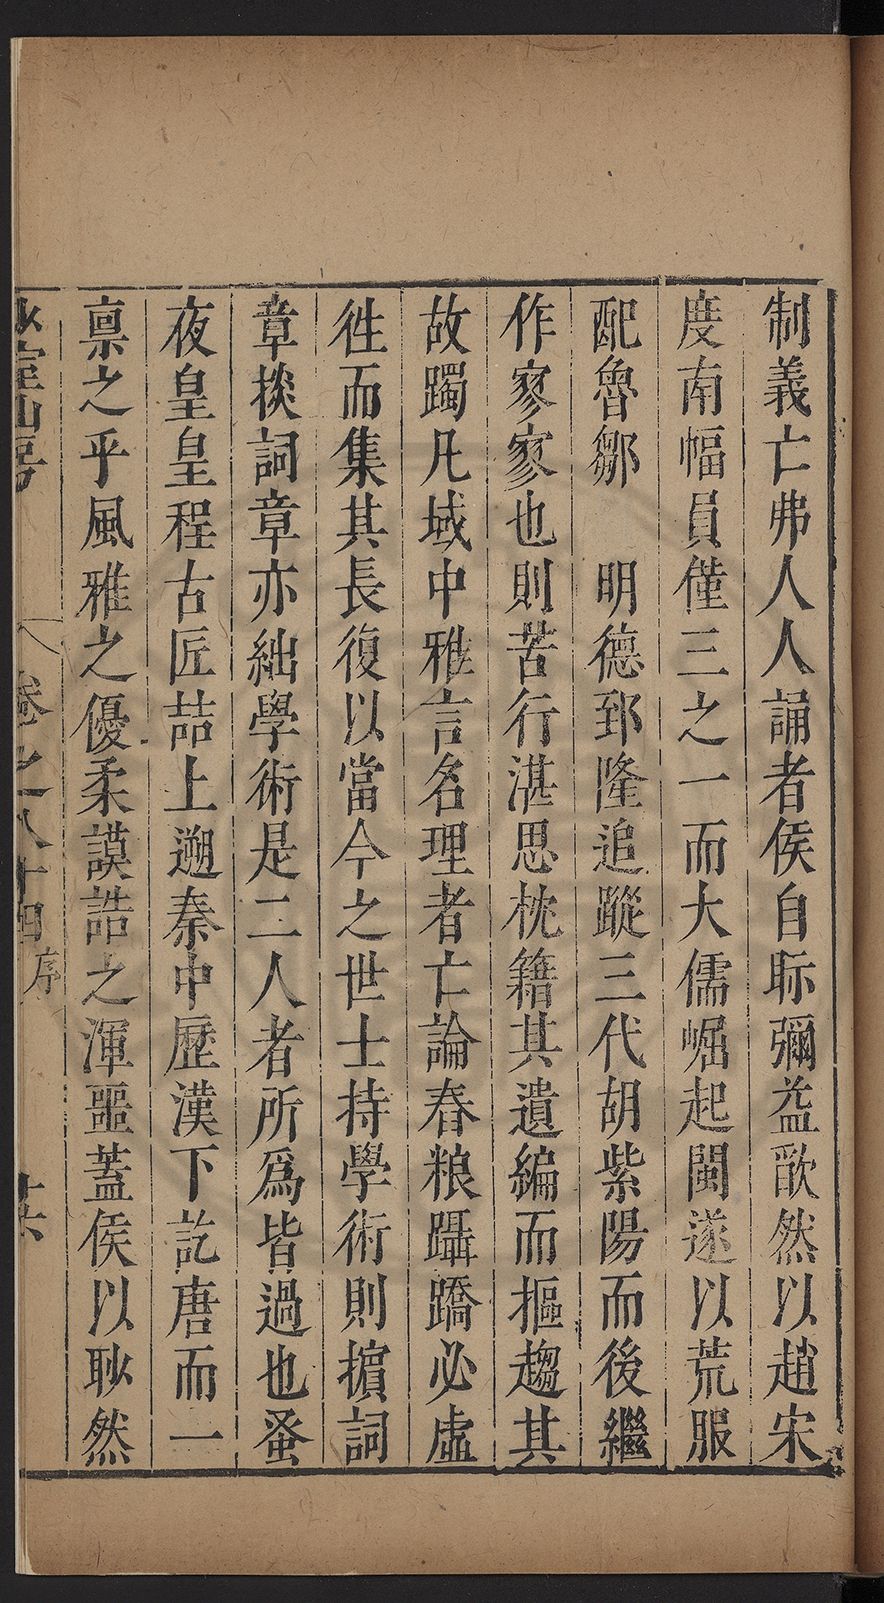 制義亡弗人人誦者侯自眎彌益歉然以趙宋
度南幅員僅三之一而大儒崛起閩遂以荒服
配魯鄒　明德郅隆追蹤三代胡紫陽而後繼
作寥寥也則苦行湛思枕籍其遺編而摳趨其
故躅凡域中雅言名理者亡論舂粮躡蹻必虛
徃而集其長復以當今之世士持學術則擯詞
章掞詞章亦絀學術是二人者所爲皆過也蚤
夜皇皇程古匠喆上遡秦中歷漢下訖唐而一
稟之乎風雅之優柔謨誥之渾噩蓋侯以耿然
少室山房　卷之八十四　序　十六